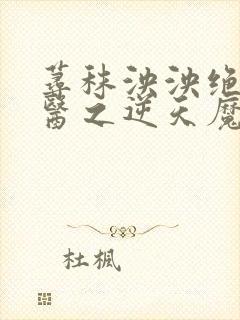 蕁秣泱泱绝
醫之逆天魔
杜楓